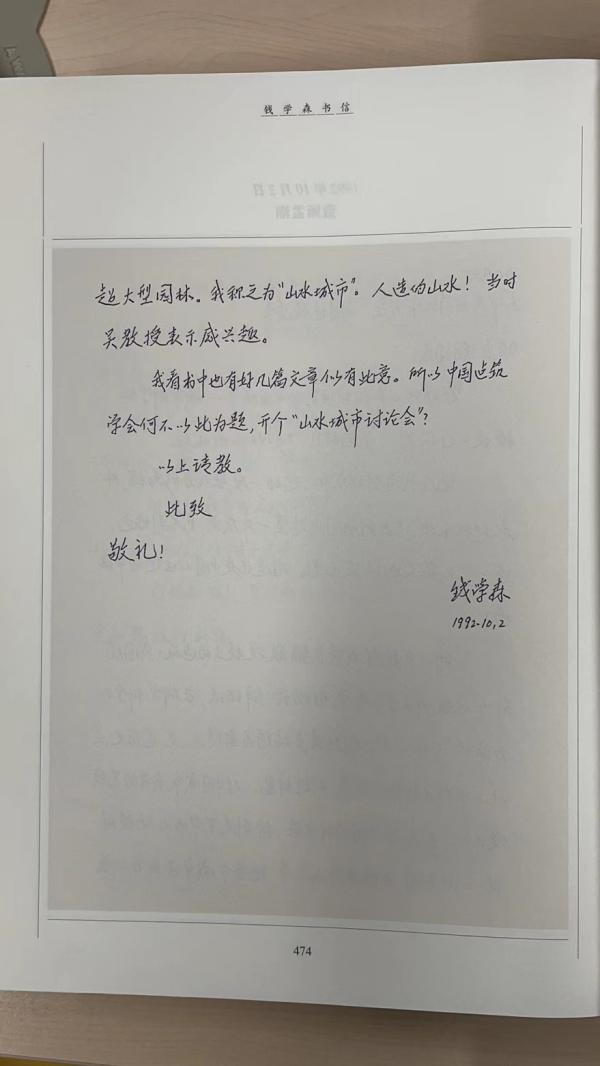 钱学森书信
超大型园林。我称之为“山水城市”。人造的山水！当时
吴教授表示感兴趣。
我看书中也有好几篇文章似有此意。所以中国建筑
学会何不以此为题，开个“山水城市讨论会”？
以上请教。
此致
敬礼！
钱学森
1992.10.2
474